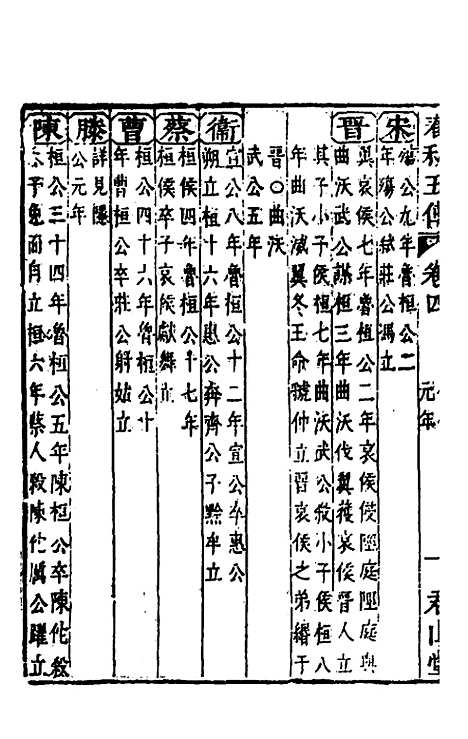 春秋五傳 卷四 元年 一
宋
殤公九年魯桓公二
年殤公弒莊公馮立
晉
哀侯八年魯桓公二年哀侯侵陘庭陘庭與
曲沃武公謀桓三年曲沃伐翼獲哀侯晉人立
其子小子侯桓七年曲沃武公殺小子侯桓八
年曲沃滅翼冬王命虢仲立晉哀侯之弟緡于
晉○曲沃
武公五年
衞
宣公八年魯桓公十二年宣公卒惠公
朔立桓十六年惠公奔齊公子黔牟立
蔡
桓侯四年魯桓公十七年
桓侯卒子哀侯獻舞立
曹
桓公四十六年魯桓公十
年曹桓公卒莊公射姑立
滕
詳見隱
公元年
陳
桓公三十四年魯桓公五年陳桓公卒陳佗殺
太子免而自立桓六年蔡人殺陳佗厲公躍立